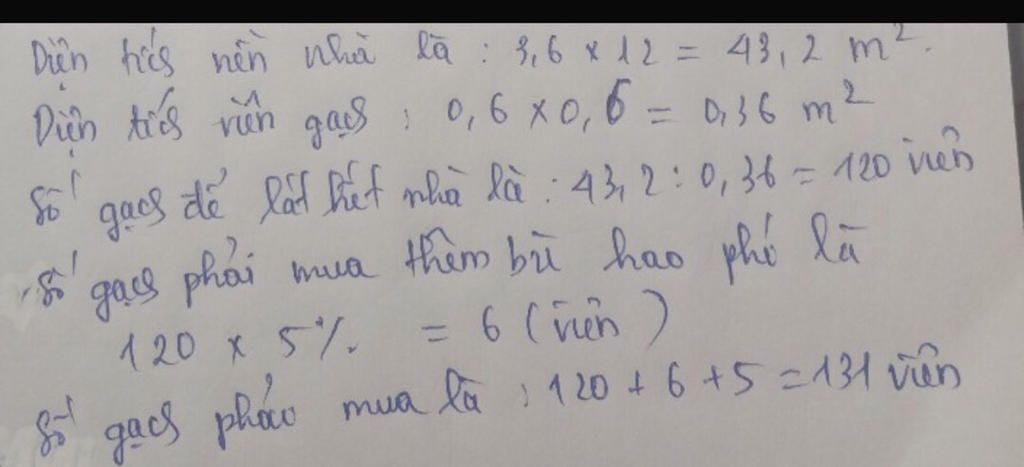 Diện tích nền nhà là : 3,6 x 12 = 43,2 m².
Diện tích viên gạch : 0,6 x 0,6 = 0,36 m²
Số gạch để lát hết nhà là : 43,2 : 0,36 = 120 viên
Số gạch phải mua thêm bù hao phí là
120 x 5% = 6 (viên)
Số gạch phải mua là : 120 + 6 + 5 = 131 viên